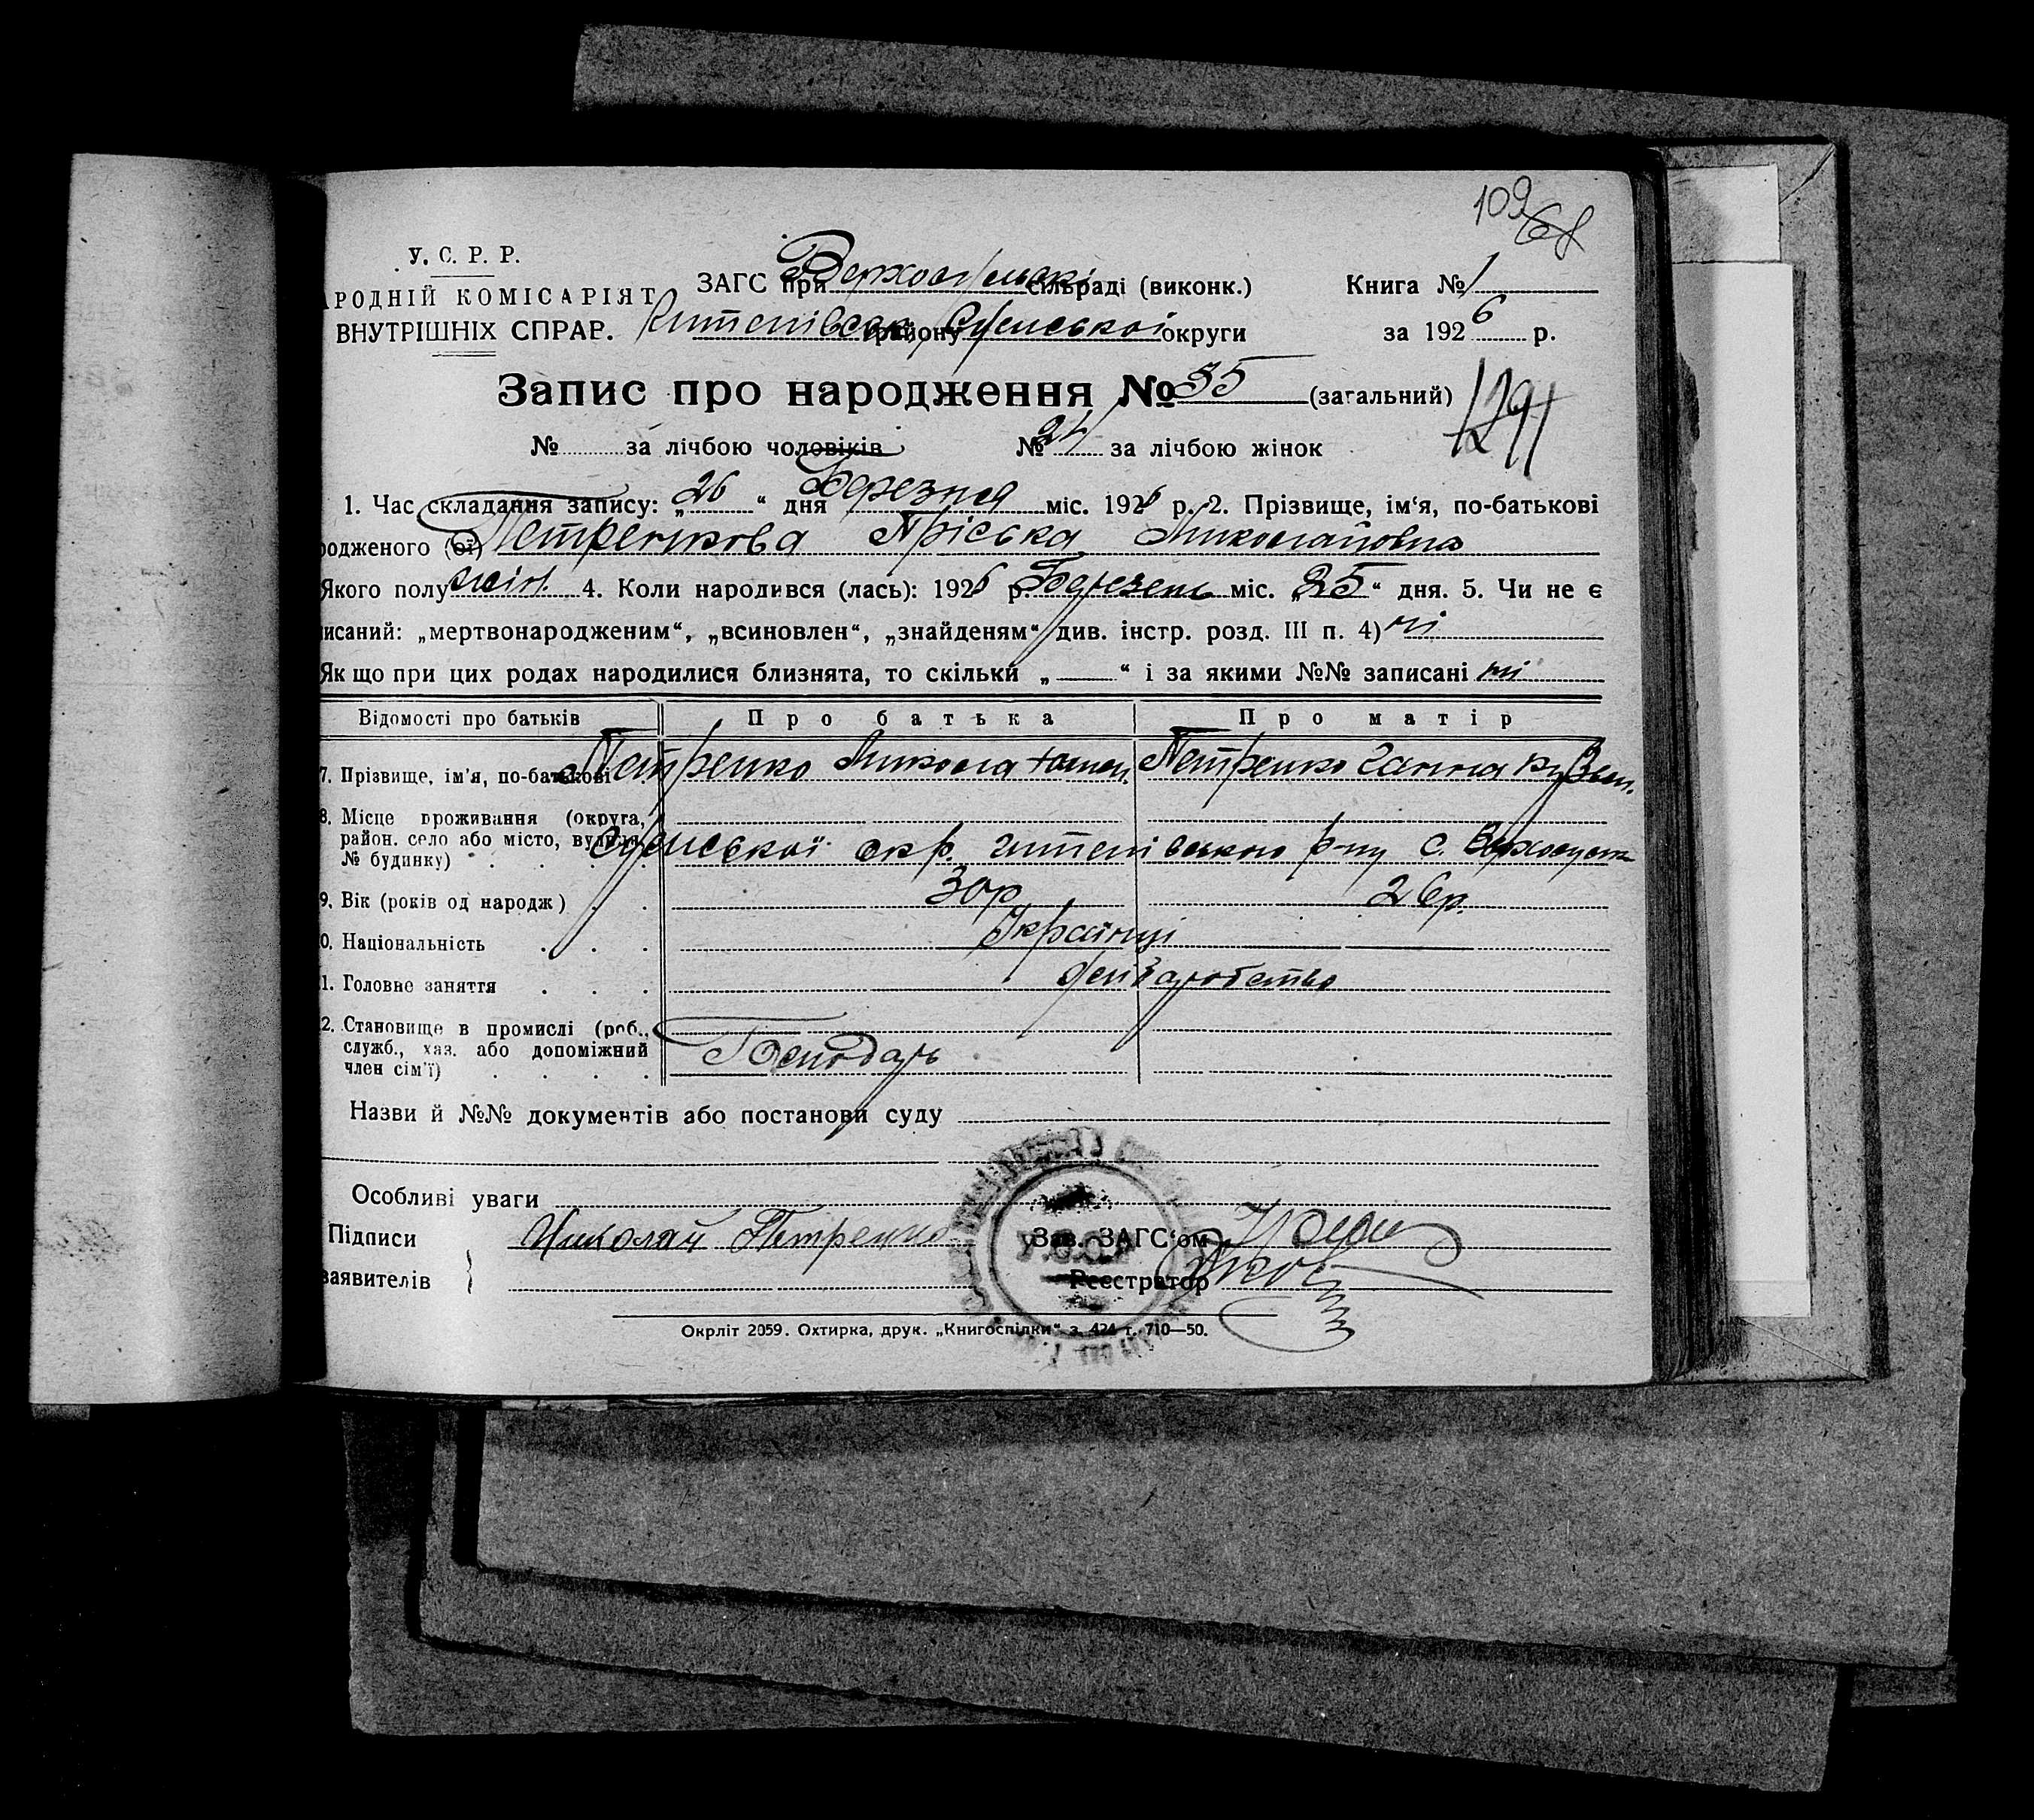 109
68
У. С. Р. Р.
РОДНІЙ КОМІСАРІЯТ
ВНУТРІШНІХ СПРАВ.
ЗАГС при сільраді (виконк.)
району Сумської округи
Книга № 1
за 1926 р.
Запис про народження № 35 (загальний)
1291
№ за лічбою чоловіків № 21 за лічбою жінок
1. Час складання запису: „26“ дня Березня міс. 1926 р. 2. Прізвище, ім'я, по-батькові
родженого (ої) Петренкова Пріська Миколаївна
Якого полу жін. 4. Коли народився (лась): 1926 р. Березень міс. „25“ дня. 5. Чи не є
исаний: „мертвонародженим“, „всиновлен“, „знайденям“ див. інстр. розд. III п. 4) ні
Як що при цих родах народилися близнята, то скільки „ “ і за якими №№ записані ні
Відомості про батьків Про батька Про матір
7. Прізвище, ім'я, по-батькові Петренко Микола Петренко Ганна Кузьм.
8. Місце проживання (округа,
район. село або місто, вулиця,
№ будинку)
Сумської окр. р-ну с.
9. Вік (років од народж) 30р 26р.
0. Національність Українці
1. Головне заняття
2. Становище в промислі (роб.,
служб., хаз. або допоміжний
член сім'ї)
Господарь
Назви й №№ документів або постанови суду
Особливі уваги
Підписи
заявителів
Николай Петренко
Зав. ЗАГС'ом
Реєстратор
Окрліт 2059. Охтирка, друк. „Книгоспілки“ з. 424 т. 710—50.